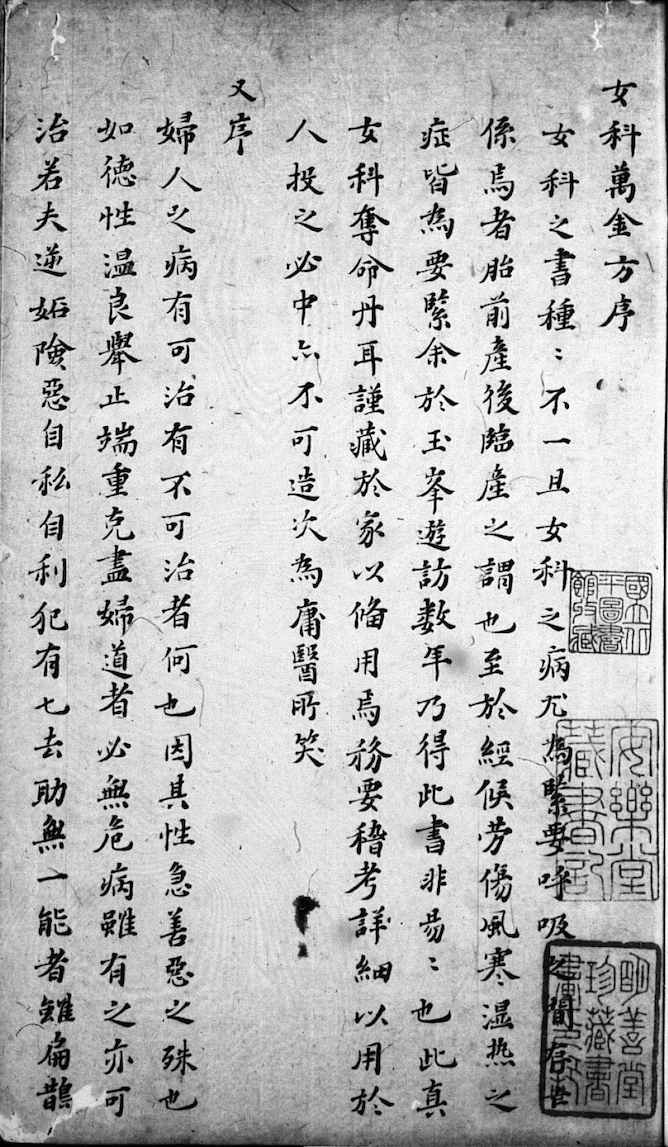 女科萬金方序
女科之書種〻不一且女科之病尤為緊要呼吸之間存世
係焉者胎前產後臨產之謂也至於經候勞傷風寒湿热之
症皆為要緊余於玉峯遊訪数年乃得此書非易〻也此真
女科奪命丹耳謹藏於家以俻用焉務要稽考詳細以用於
人投之必中亦不可造次為庸醫所笑
又序
婦人之病有可治有不可治者何也因其性急善惡之殊也
如德性温良舉止端重克盡婦道者必無危病雖有之亦可
治若夫逆妬險惡自私自利犯有七去助無一能者雖扁鵲
國立北
平圖書
館收藏
安樂堂
藏書記
明善堂
珍藏書
畫印記